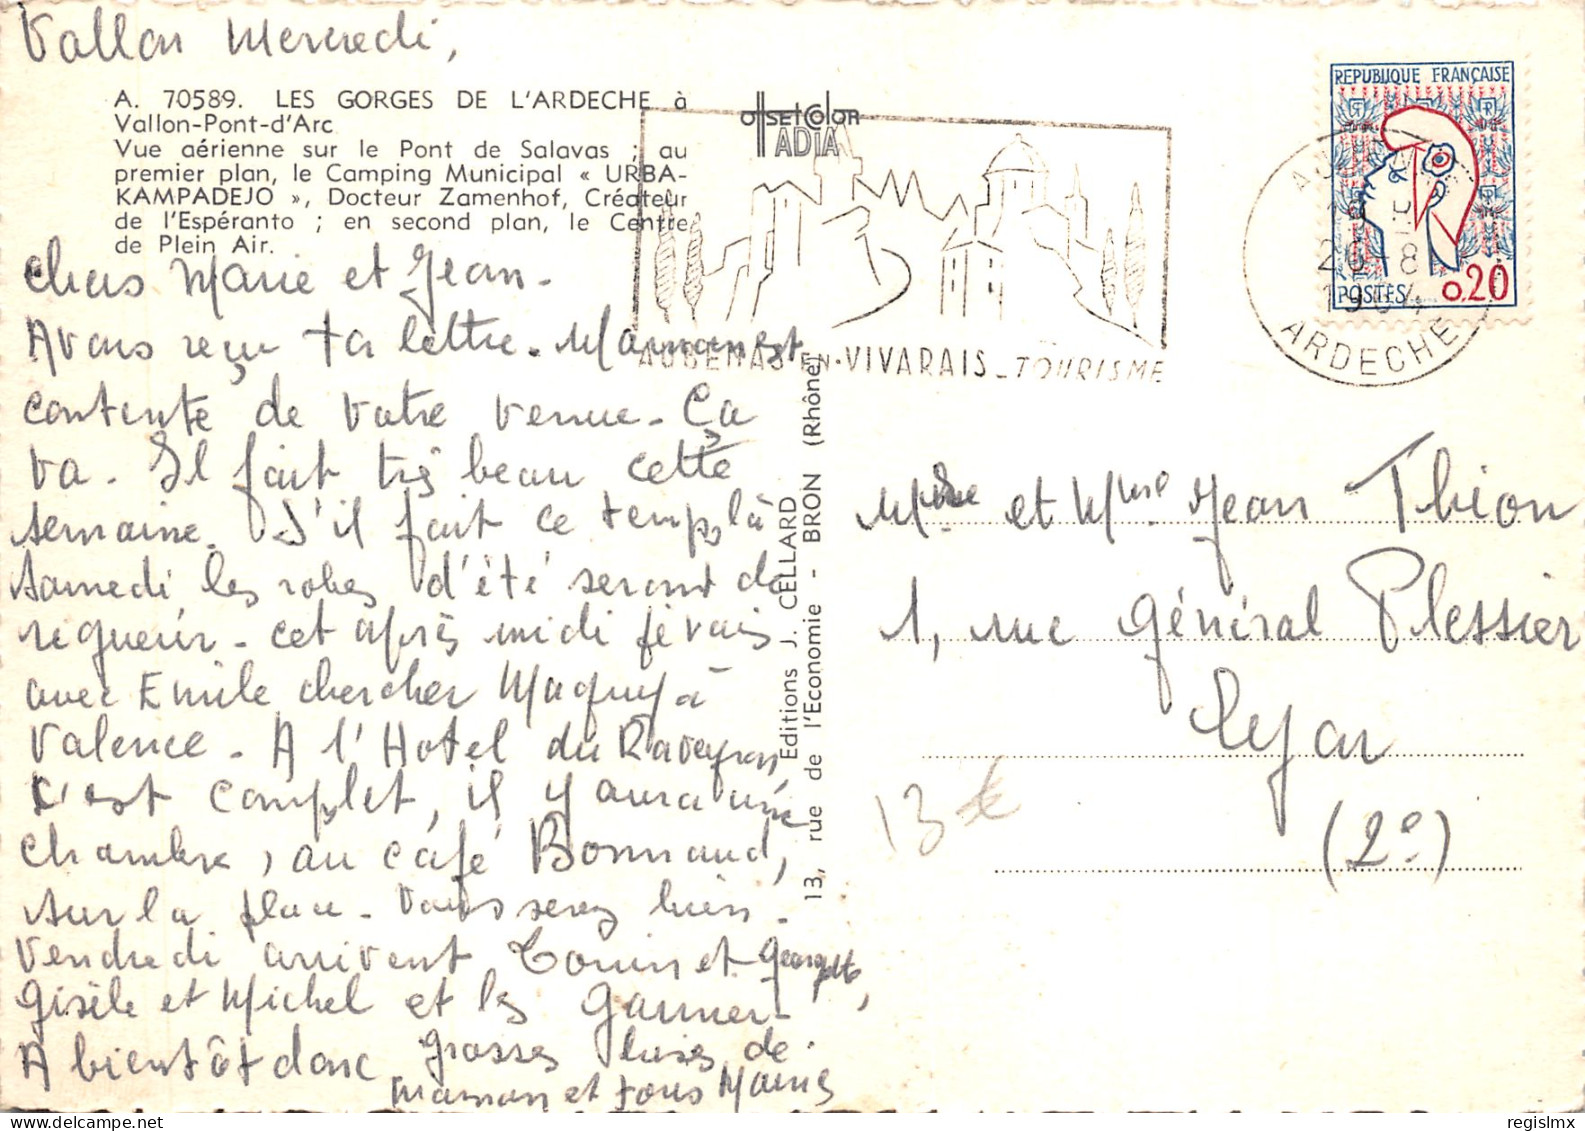 Vallon Mercredi,
A. 70589. LES GORGES DE L'ARDECHE à
Vallon-Pont-d'Arc
Vue aérienne sur le Pont de Salavas ; au
premier plan, le Camping Municipal « URBA-
KAMPADEJO », Docteur Zamenhof, Créateur
de l'Espéranto ; en second plan, le Centre
de Plein Air.
Chers Marie et Jean.
Avons reçu ta lettre. Maman est
contente de votre venue. Ça
va. Il fait très beau cette
semaine. S'il fait ce temps là
samedi, les robes d'été seront de
regueur. Cet après midi je vais
avec Emile chercher Maguy à
Valence. A l'Hotel du Raveyron,
c'est complet, il y aura une
chambre, au café Bonnaud,
sur la place. Vous serez bien.
Vendredi arrivent Tonin et Georgette,
Gisèle et Michel et les Garnier
A bientôt donc grosses bises de
maman et tous
offsetcolor
ADIA
AUBENAS-EN-VIVARAIS - TOURISME
Editions J. CELLARD
13, rue de l'Economie - BRON (Rhône)
REPUBLIQUE FRANÇAISE
POSTES 0.20
AUBENAS
26-8
1964
ARDECHE
et Mme Jean Thion
1, rue Général Plessier
Lyon
(2e)
13
regislmx
delcampe.net